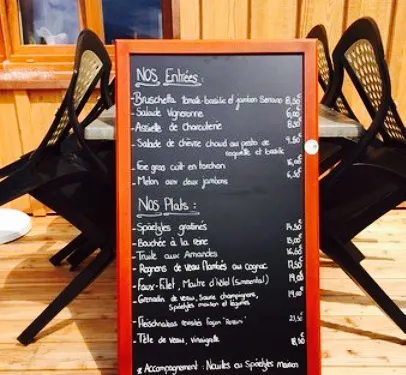 NOS Entrées :
- Bruschetta tomate-basilic et jambon Serrano 8,50€
- Salade Vigneronne 6,00€
- Assiette de Charcuterie 8,50€
- Salade de chèvre chaud au pesto de roquette et basilic 9.50€
- Foie gras cuit en torchon 16,00€
- Melon aux deux jambons 6,50€
NOS Plats :
- Späetzles gratinés 14,50€
- Bouchée à la reine 15,00€
- Truite aux Amandes 16,60€
- Rognons de veau flambés au cognac 17,50€
- Faux-Filet, Maître d'hôtel (Simmenthal) 19,00€
- Grenadin de veau, sauce champignons, 19,00€
Späetzles maison et légumes
- Fleischnakas revisités façon "Rossini" 21,50€
- Tête de veau, vinaigrette 18,50€
* Accompagnement : Nouilles ou Späetzles maison